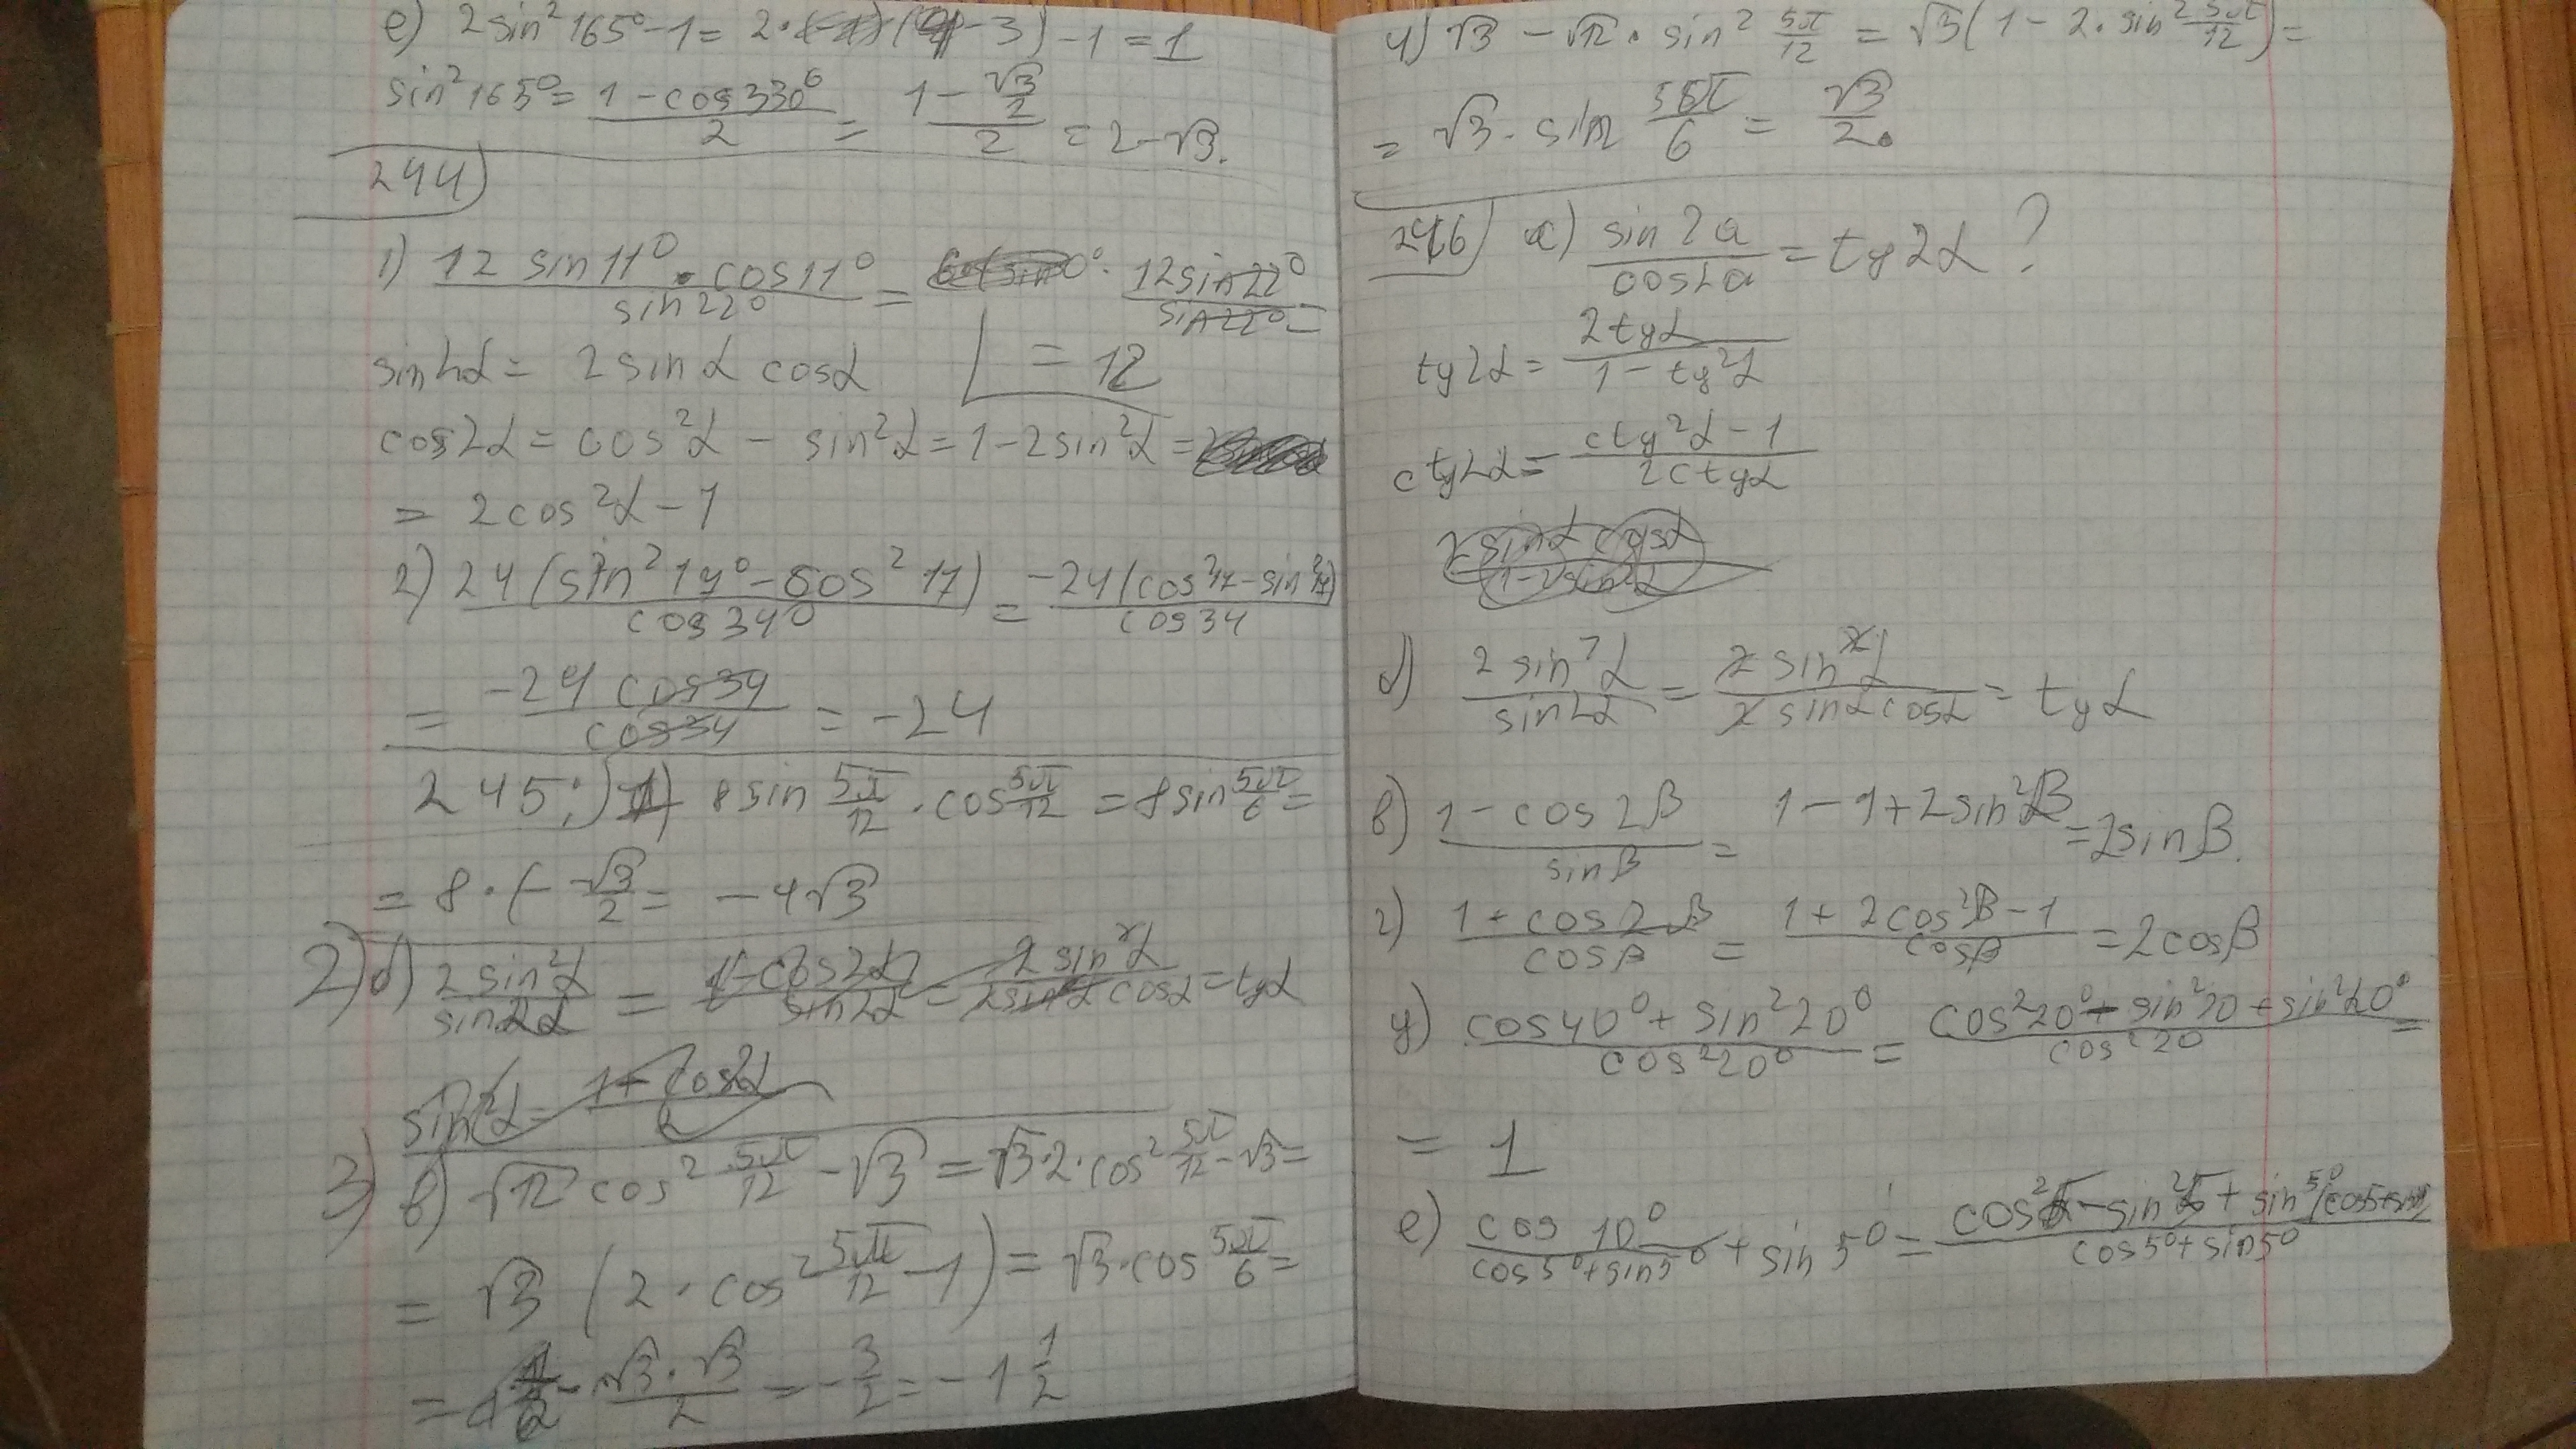 e) 2sin²165°-1 = 2·( -3)-1 = 1
sin²165° = (1-cos330°)/2 = (1-√3/2)/2 = 2-√3.
244)
1) (12 sin11°·cos11°)/(sin22°) = (12sin22°)/(sin22°) =
sin2α = 2sinα cosα = 12
cos2α = cos²α - sin²α = 1-2sin²α =
= 2cos²α-1
2) (24(sin²17°-cos²17))/(cos34°) = (-24(cos²17-sin²17))/(cos34)
= (-24cos34)/(cos34) = -24
245:) 1) 8sin 5π/12·cos 5π/12 = 8sin 5π/6 =
= 8·(-√3/2 = -4√3
2) б) (2sin²α)/(sin2α) = (1-cos2α)/(sin2α) = (2sin²α)/(2sinα cosα) = tgα
sin²α = (1+cos2α)/2
3) в) √12 cos² 5π/12 - √3 = √3·2·cos² 5π/12 - √3 =
= √3 (2·cos² 5π/12 - 1) = √3·cos 5π/6 =
= - (√3·√3)/2 = -3/2 = -1 1/2
4) √3 - √12·sin² 5π/12 = √3(1-2·sin² 5π/12) =
= √3·sin 5π/6 = √3/2.
246) a) (sin2a)/(cos2a) = tg2α ?
tg2α = (2tgα)/(1-tg²α)
ctg2α = (ctg²α-1)/(2ctgα)
(2sinα cosα)/(1-2sin²α)
б) (2sin²α)/(sin2α) = (2sin²α)/(2sinα cosα) = tgα
в) (1-cos2β)/(sinβ) = 1-1+2sin²β = 2sinβ.
г) (1+cos2β)/(cosβ) = (1+2cos²β-1)/(cosβ) = 2cosβ
g) (cos40°+sin²20°)/(cos²20°) = (cos²20°-sin²20+sin²20°)/(cos²20) =
= 1
e) (cos10°)/(cos5°+sin5°)+sin5° = (cos²5-sin²5+sin5°(cos5+sin5))/(cos5°+sin5°)